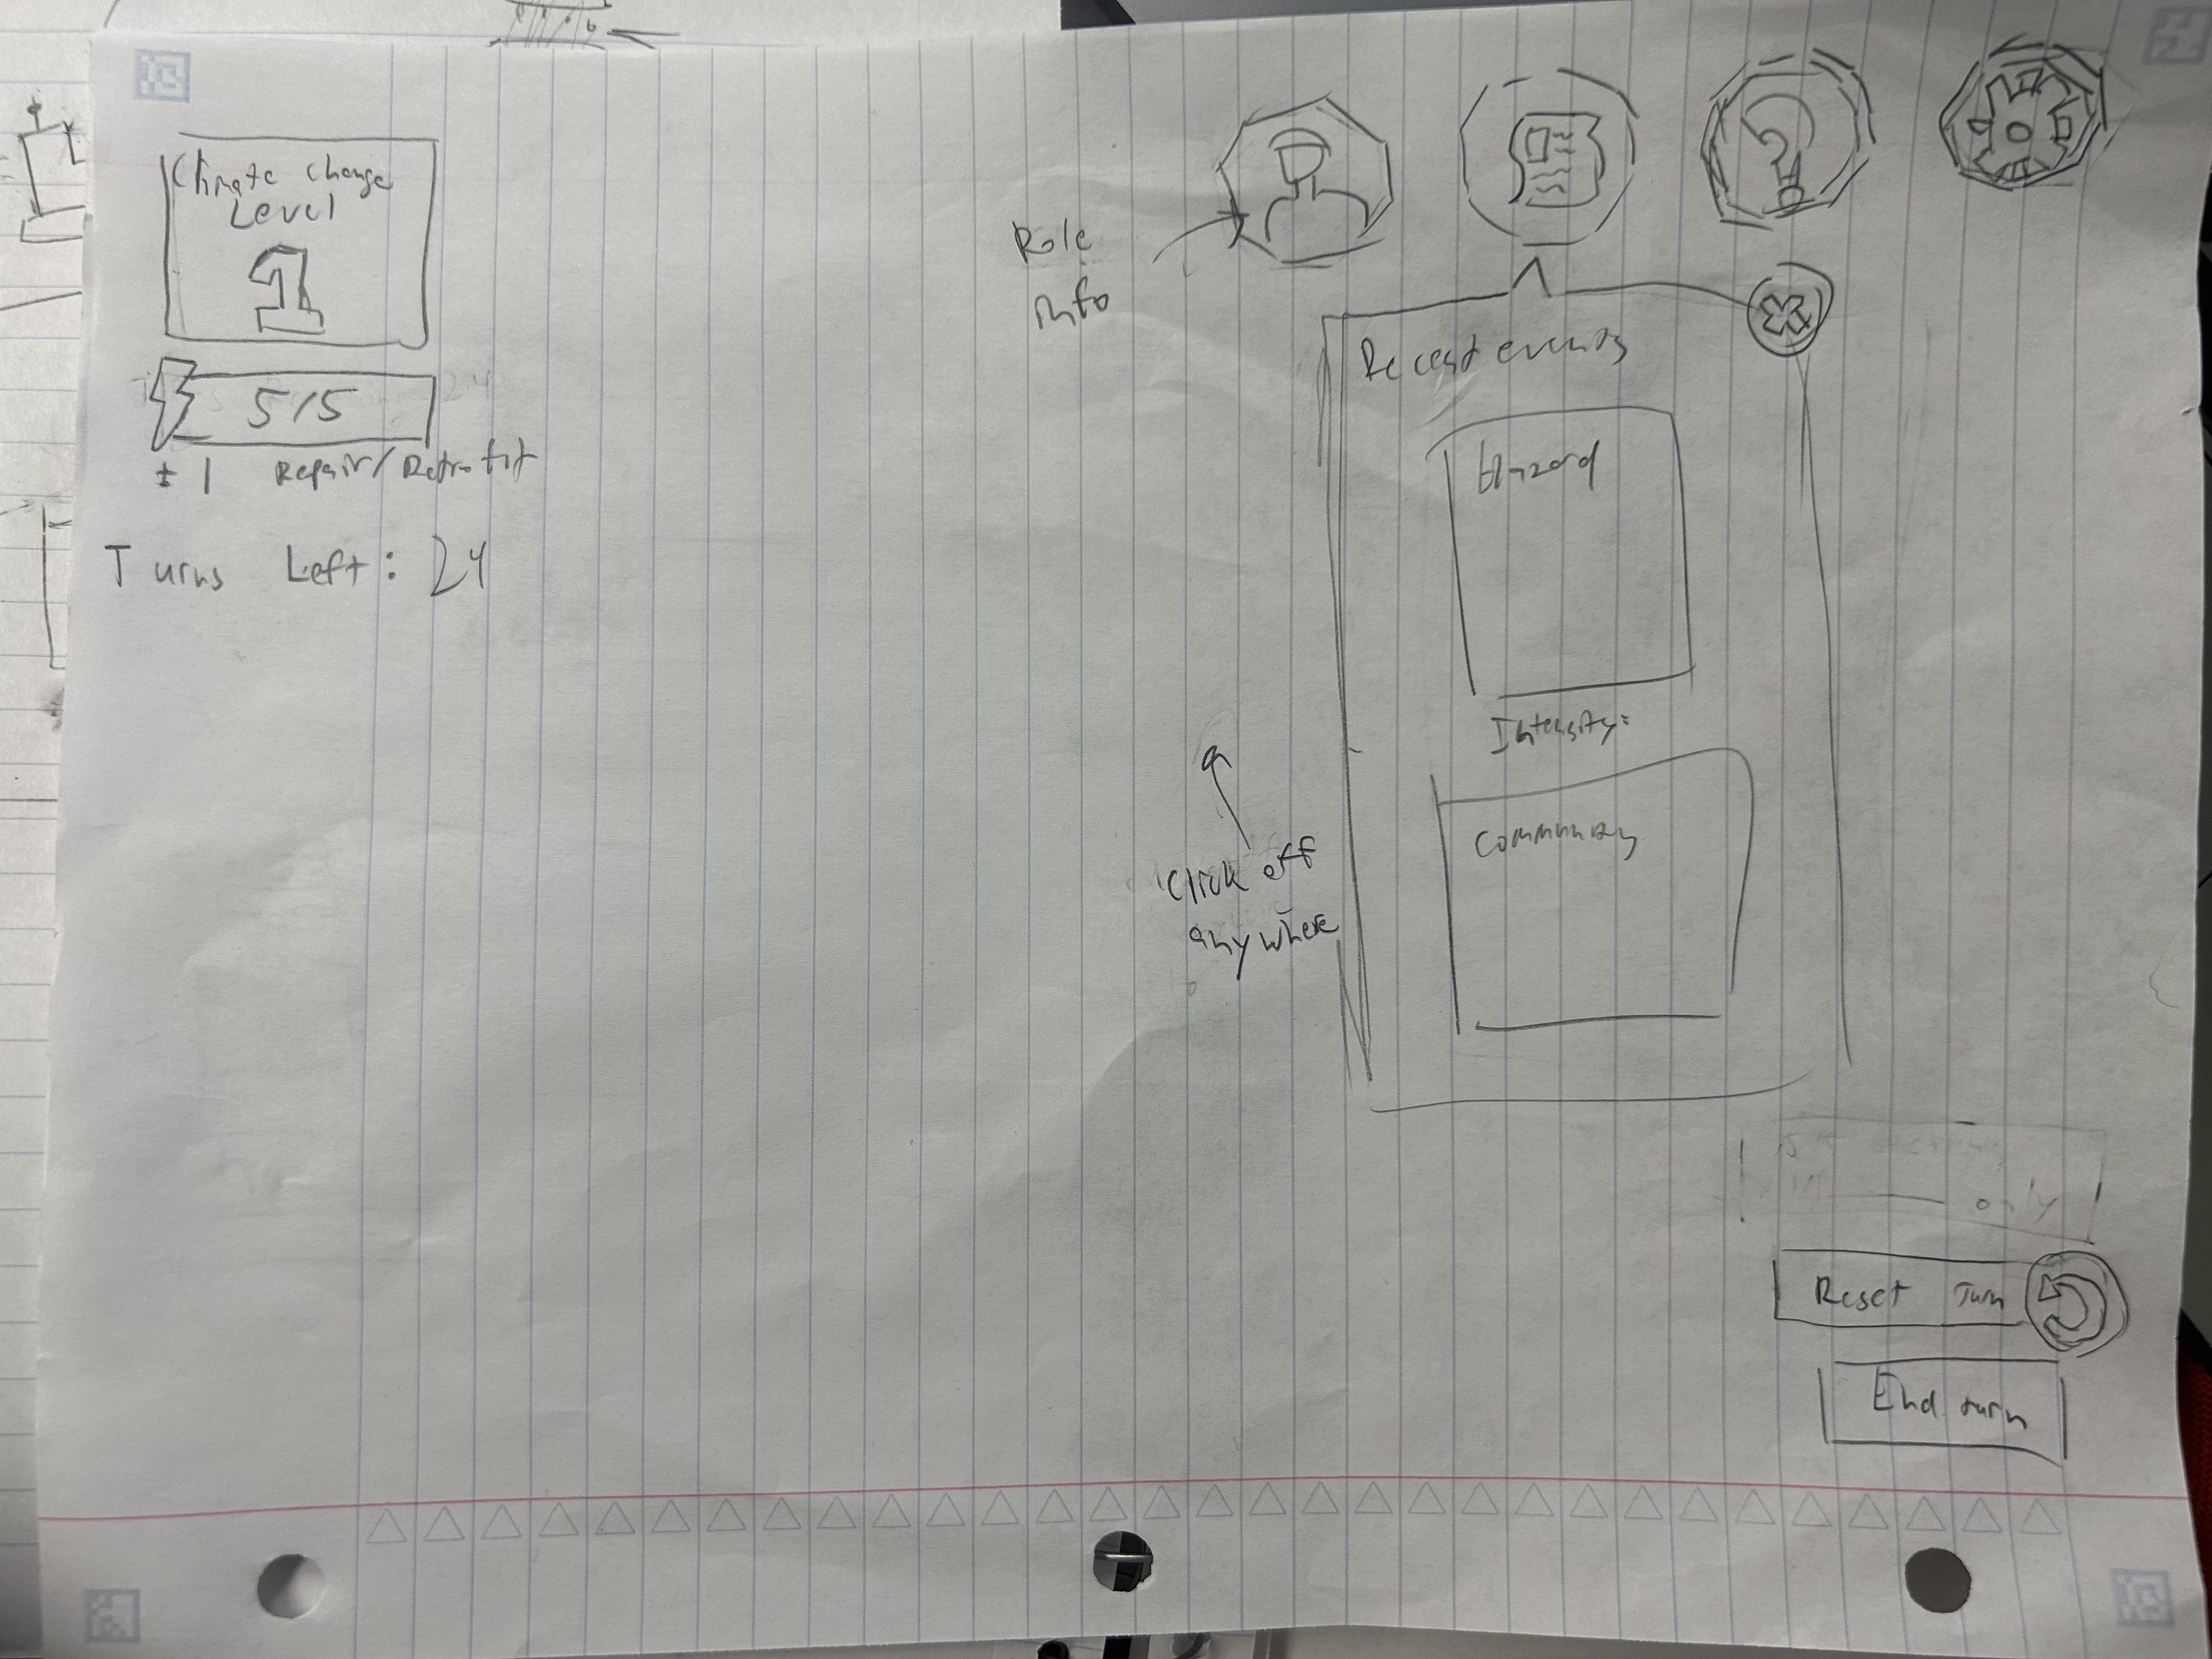 Climate change
Level
1
5/5
± 1 Repair/Retrofit
Turns Left: 24
Role
info
?
Recent events
Hazard
Intensity:
Community
Click off
anywhere
only
Reset Turn
End turn